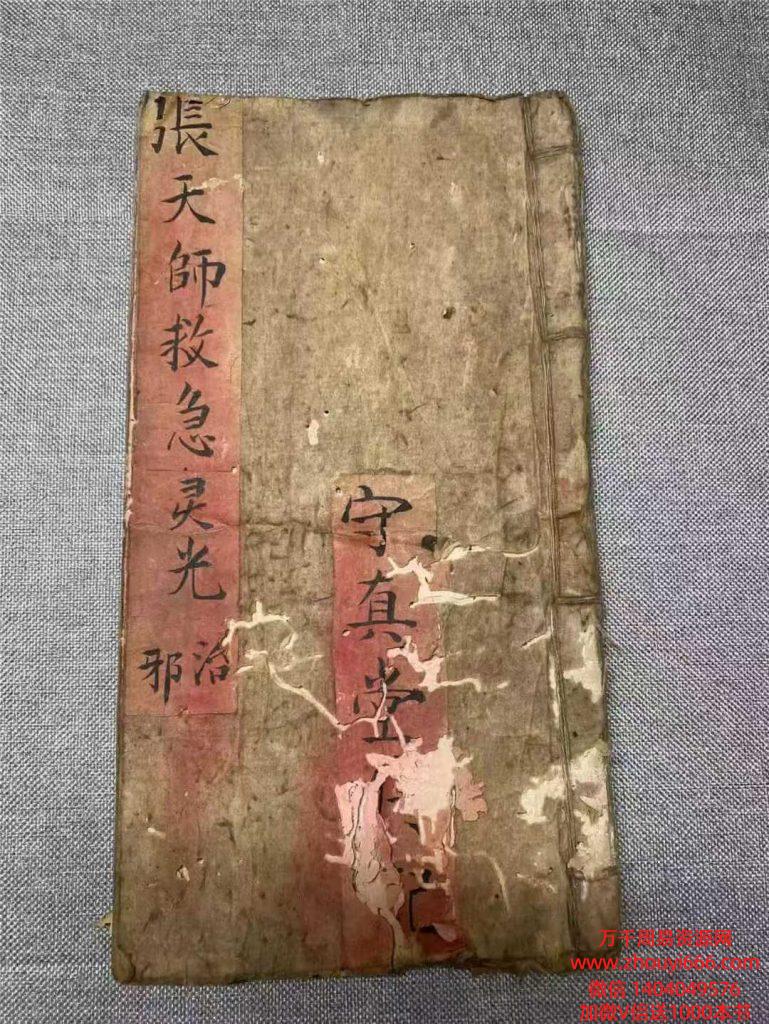 張天師救急灵光
治邪
守真堂
万千周易资源网
www.zhouyi666.com
微信 1404049576
加微V信送1000本书